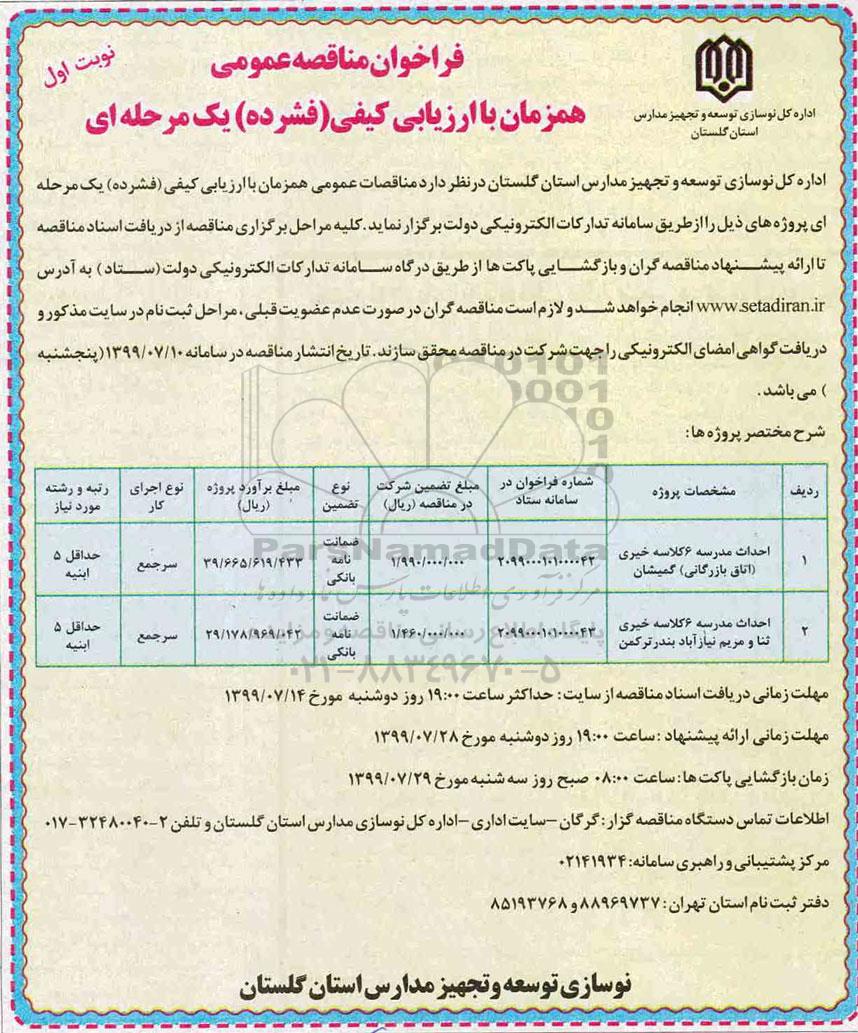 نوبت اول
فراخوان مناقصه عمومی
همزمان با ارزیابی کیفی(فشرده) یک مرحله ای
اداره کل نوسازی توسعه و تجهیز مدارس
استان گلستان
اداره کل نوسازی توسعه و تجهیز مدارس استان گلستان در نظر دارد مناقصات عمومی همزمان با ارزیابی کیفی (فشرده) یک مرحله
ای پروژه های ذیل را از طریق سامانه تدارکات الکترونیکی دولت برگزار نماید. کلیه مراحل برگزاری مناقصه از دریافت اسناد مناقصه
تا ارائه پیشنهاد مناقصه گران و بازگشایی پاکت ها از طریق درگاه سامانه تدارکات الکترونیکی دولت (ستاد) به آدرس
www.setadiran.ir انجام خواهد شد و لازم است مناقصه گران در صورت عدم عضویت قبلی، مراحل ثبت نام در سایت مذکور و
دریافت گواهی امضای الکترونیکی را جهت شرکت در مناقصه محقق سازند. تاریخ انتشار مناقصه در سامانه ۱۳۹۹/۰۷/۱۰ (پنجشنبه
) می باشد.
شرح مختصر پروژه ها:
ردیف | مشخصات پروژه | شماره فراخوان در سامانه ستاد | مبلغ تضمین شرکت در مناقصه (ریال) | نوع تضمین | مبلغ برآورد پروژه (ریال) | نوع اجرای کار | رتبه و رشته مورد نیاز
۱ | احداث مدرسه ۶کلاسه خیری (اتاق بازرگانی) گمیشان | ۲۰۹۹۰۰۰۱۰۱۰۰۰۰۴۲ | ۱/۹۹۰/۰۰۰/۰۰۰ | ضمانت نامه بانکی | ۳۹/۶۶۵/۶۱۹/۴۳۳ | سرجمع | حداقل ۵ ابنیه
۲ | احداث مدرسه ۶کلاسه خیری ثنا و مریم نیازآباد بندرترکمن | ۲۰۹۹۰۰۰۱۰۱۰۰۰۰۴۳ | ۱/۴۶۰/۰۰۰/۰۰۰ | ضمانت نامه بانکی | ۲۹/۱۷۸/۹۶۹/۰۴۲ | سرجمع | حداقل ۵ ابنیه
ParsNamadData
مرکز فرآوری اطلاعات پارس نماد داده ها
پایگاه اطلاع رسانی مناقصه و مزایده
۰۲۱-۸۸۳۴۹۶۷۰-۵
مهلت زمانی دریافت اسناد مناقصه از سایت: حداکثر ساعت ۱۹:۰۰ روز دوشنبه مورخ ۱۳۹۹/۰۷/۱۴
مهلت زمانی ارائه پیشنهاد: ساعت ۱۹:۰۰ روز دوشنبه مورخ ۱۳۹۹/۰۷/۲۸
زمان بازگشایی پاکت ها: ساعت ۰۸:۰۰ صبح روز سه شنبه مورخ ۱۳۹۹/۰۷/۲۹
اطلاعات تماس دستگاه مناقصه گزار: گرگان –سایت اداری –اداره کل نوسازی مدارس استان گلستان و تلفن ۲-۳۲۴۸۰۰۴۰-۰۱۷
مرکز پشتیبانی و راهبری سامانه: ۰۲۱۴۱۹۳۴
دفتر ثبت نام استان تهران: ۸۸۹۶۹۷۳۷ و ۸۵۱۹۳۷۶۸
نوسازی توسعه و تجهیز مدارس استان گلستان